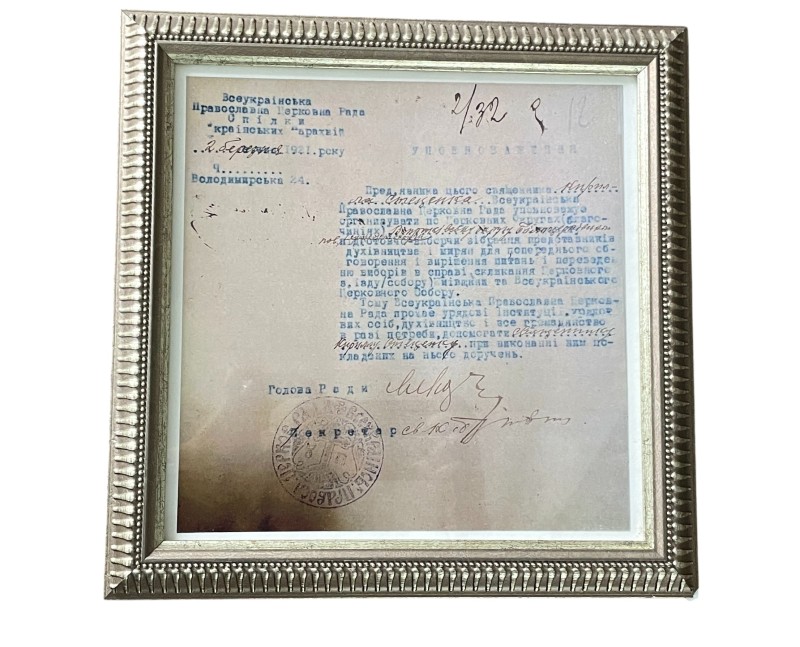 Всеукраінська
Православна Церковна Рада
Спілки
країнських парахвій
2 березня 1921. року
Ч.........
Володимирська 24.
2/32
12
УПОВНОВАЖЕННЯ
Пред'явника цього священника Кирила
Стеценка. Всеукраінська
Православна Церковна Рада уповноважує
організувати по Церковних округах/благо-
чиніях/
підготовчі вибори
духівництва і мирян для попереднього об-
говорення і вирішення питань і переведен-
ню виборів в справі скликання Церковного
з'ізду/собору/ Київщини та Всеукраінського
Церковного Собору.
Тому Всеукраінська Православна Церков-
на Рада прохає урядові інституціі, урядо-
вих осіб, духівництво і все громадянство
в разі потреби, допомагати священнику
Кирилу Стеценку при виконанні ним по-
кладених на нього доручень.
Голова Ради
Секретар